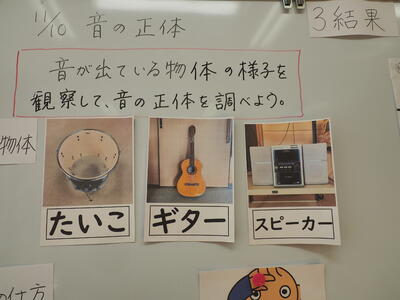 11/10 音の正体
3結果
音が出ている物体の様子を
観察して、音の正体を調べよう。
物体
たいこ
ギター
スピーカー
の仕方